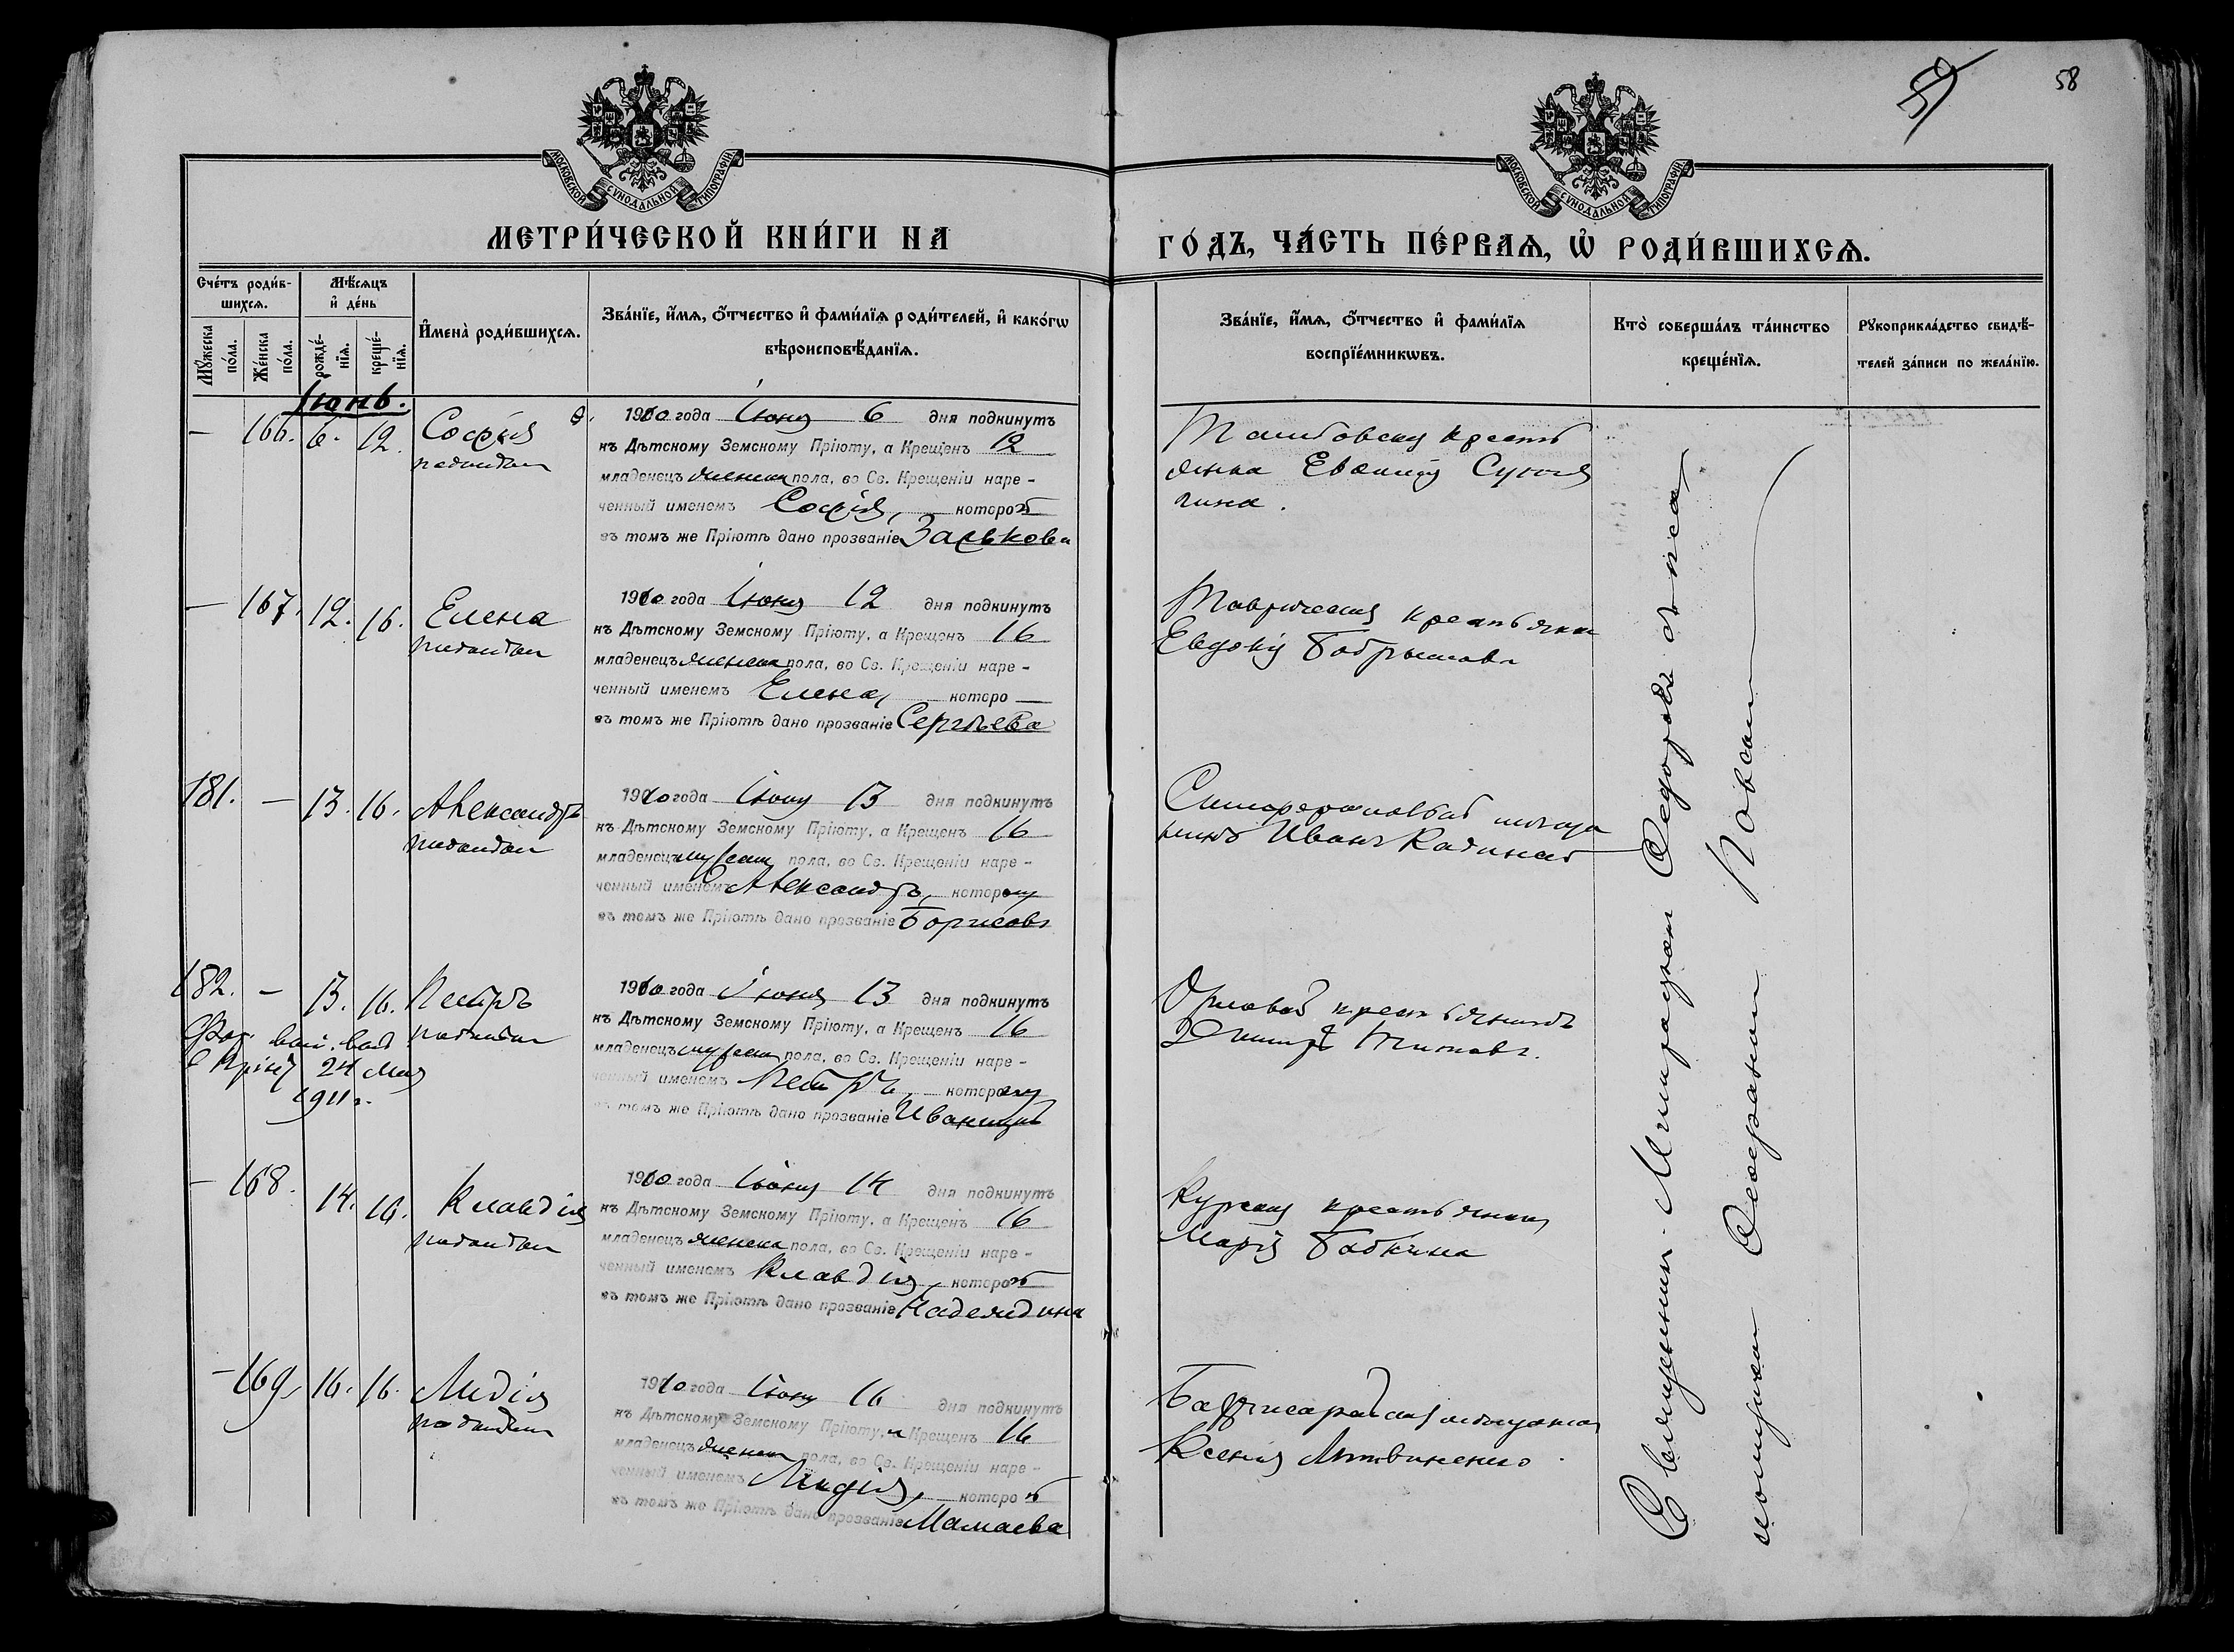 58
МОСКОВСКОЙ СѴНОДАЛЬНОЙ ТИПОГРАФІИ.
МОСКОВСКОЙ СѴНОДАЛЬНОЙ ТИПОГРАФІИ.
МЕТРИ́ЧЕСКОЙ КНИ́ГИ НА
ГО́ДЪ, ЧА́СТЬ ПЕ́РВАѦ, Ѡ҆ РОДИ́ВШИХСѦ.
Сче́тъ роди́в-
шихсѧ.
Мꙋ́жеска
по́ла.
Же́нска
по́ла.
Мѣ́сѧцъ
и҆ де́нь
рожде́-
нїѧ.
креще́-
нїѧ.
И҆мена̀ роди́вшихсѧ.
Зва́нїе, и҆́мѧ, ѻ҆́тчество и҆ фами́лїѧ роди́телей, и҆ како́гѡ
вѣроисповѣ́данїѧ.
Зва́нїе, и҆́мѧ, ѻ҆́тчество и҆ фами́лїѧ
воспрїе́мникѡвъ.
Кто̀ соверша́лъ та́инство
креще́нїѧ.
Рꙋкоприкла́дство свидѣ́-
телей за́писи по жела́нїю.
Іюнь.
— 166. 6. 12. Софія
1910 года Іюня 6 дня подкинутъ
къ Дѣтскому Земскому Пріюту, а Крещенъ 12
младенецъ женска пола, во Св. Крещеніи наре-
ченный именемъ Софія, которой
въ томъ же Пріютѣ дано прозваніе Заськова
крестъ
янка
— 167. 12. 16. Елена
1910 года Іюня 12 дня подкинутъ
къ Дѣтскому Земскому Пріюту, а Крещен 16
младенецъ женска пола, во Св. Крещеніи наре-
ченный именемъ Елена, которо—
въ томъ же Пріютѣ дано прозваніе Сергѣева
Таврическая крестьянка
Евдокія
181. — 13. 16. Александръ
1910 года Іюня 13 дня подкинутъ
къ Дѣтскому Земскому Пріюту, а Крещенъ 16
младенецъ мужеска пола, во Св. Крещеніи наре-
ченный именемъ Александръ, которому
въ томъ же Пріютѣ дано прозваніе Борисовъ
Симферопольскій мѣща
нинъ Иванъ
182. — 13. 16. Петръ
24 Мая
1911 г.
1910 года Іюня 13 дня подкинутъ
къ Дѣтскому Земскому Пріюту, а Крещенъ 16
младенецъ мужеска пола, во Св. Крещеніи наре-
ченный именемъ Петръ, которому
въ томъ же Пріютѣ дано прозваніе Иваницкій
крестьянинъ
Титовъ.
— 168. 14. 16. Клавдія
1910 года Іюня 14 дня подкинутъ
къ Дѣтскому Земскому Пріюту, а Крещенъ 16
младенецъ женска пола, во Св. Крещеніи наре-
ченный именемъ Клавдія, которой
въ томъ же Пріютѣ дано прозваніе Надеждина
Курская крестьянка
Марія Бабкина
— 169. 16. 16. Лидія
1910 года Іюня 16 дня подкинутъ
къ Дѣтскому Земскому Пріюту, а Крещенъ 16
младенецъ женска пола, во Св. Крещеніи наре-
ченный именемъ Лидія, которой
въ томъ же Пріютѣ дано прозваніе Мамаева
Бахчисарайская мѣщанка
Ксенія Литвиненко.
Священник